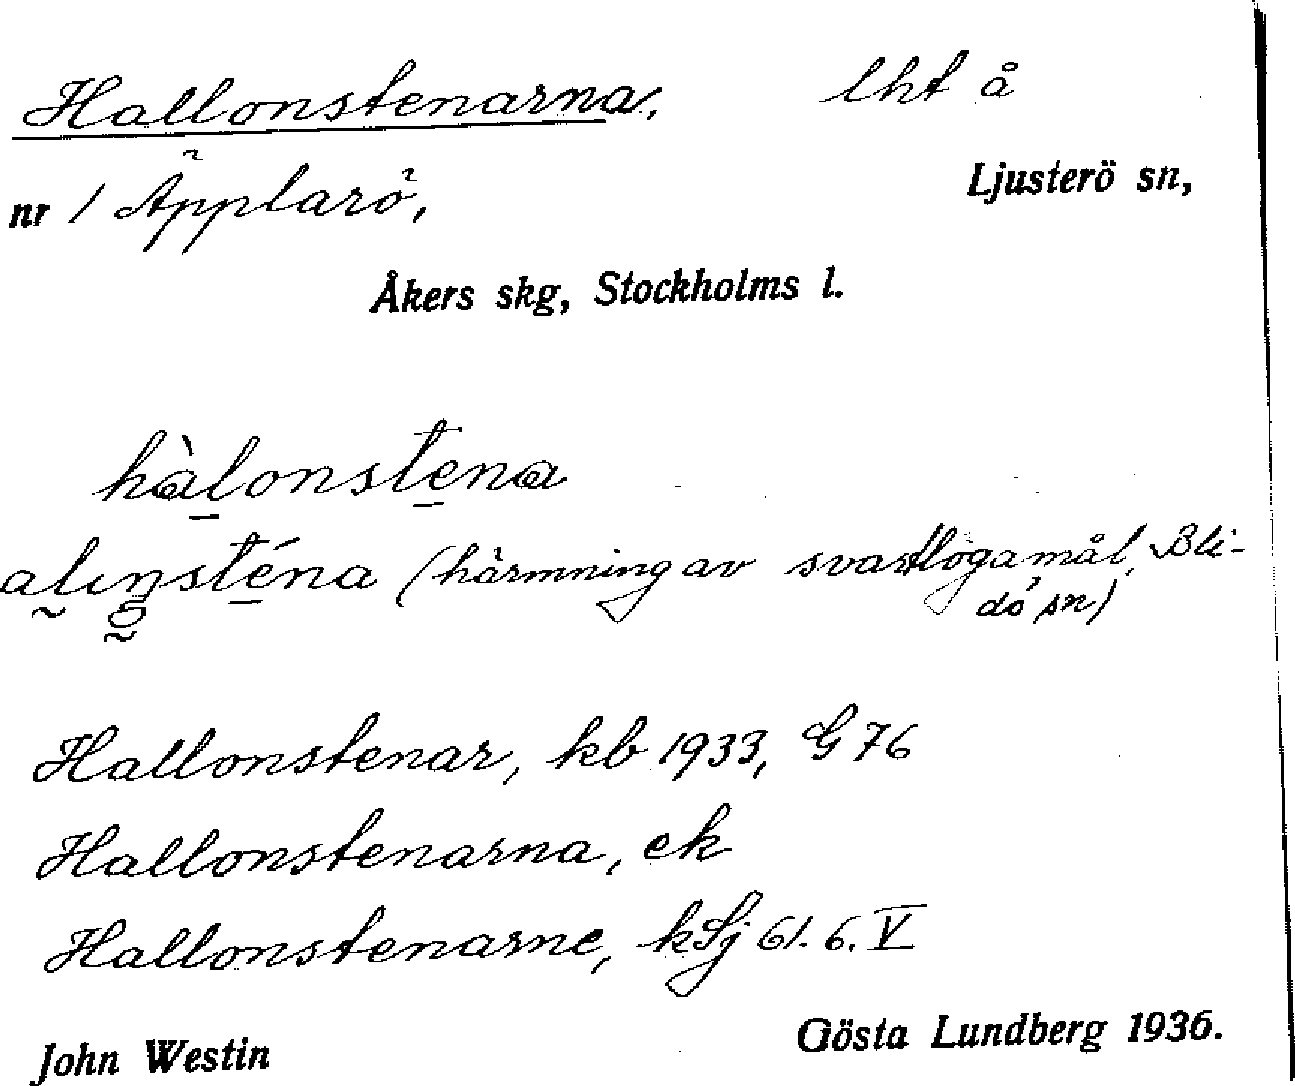 Hallonstenarna, lht å
nr 1 Äpplarö, Ljusterö sn,
Åkers skg, Stockholms l.
hàlonstena
alıŋsténa (härmning av svartlögamål, Bli-
dö sn)
Hallonstenar, kb 1933, G 76
Hallonstenarna, ek
Hallonstenarne, kSj 61. 6. V
John Westin Gösta Lundberg 1936.